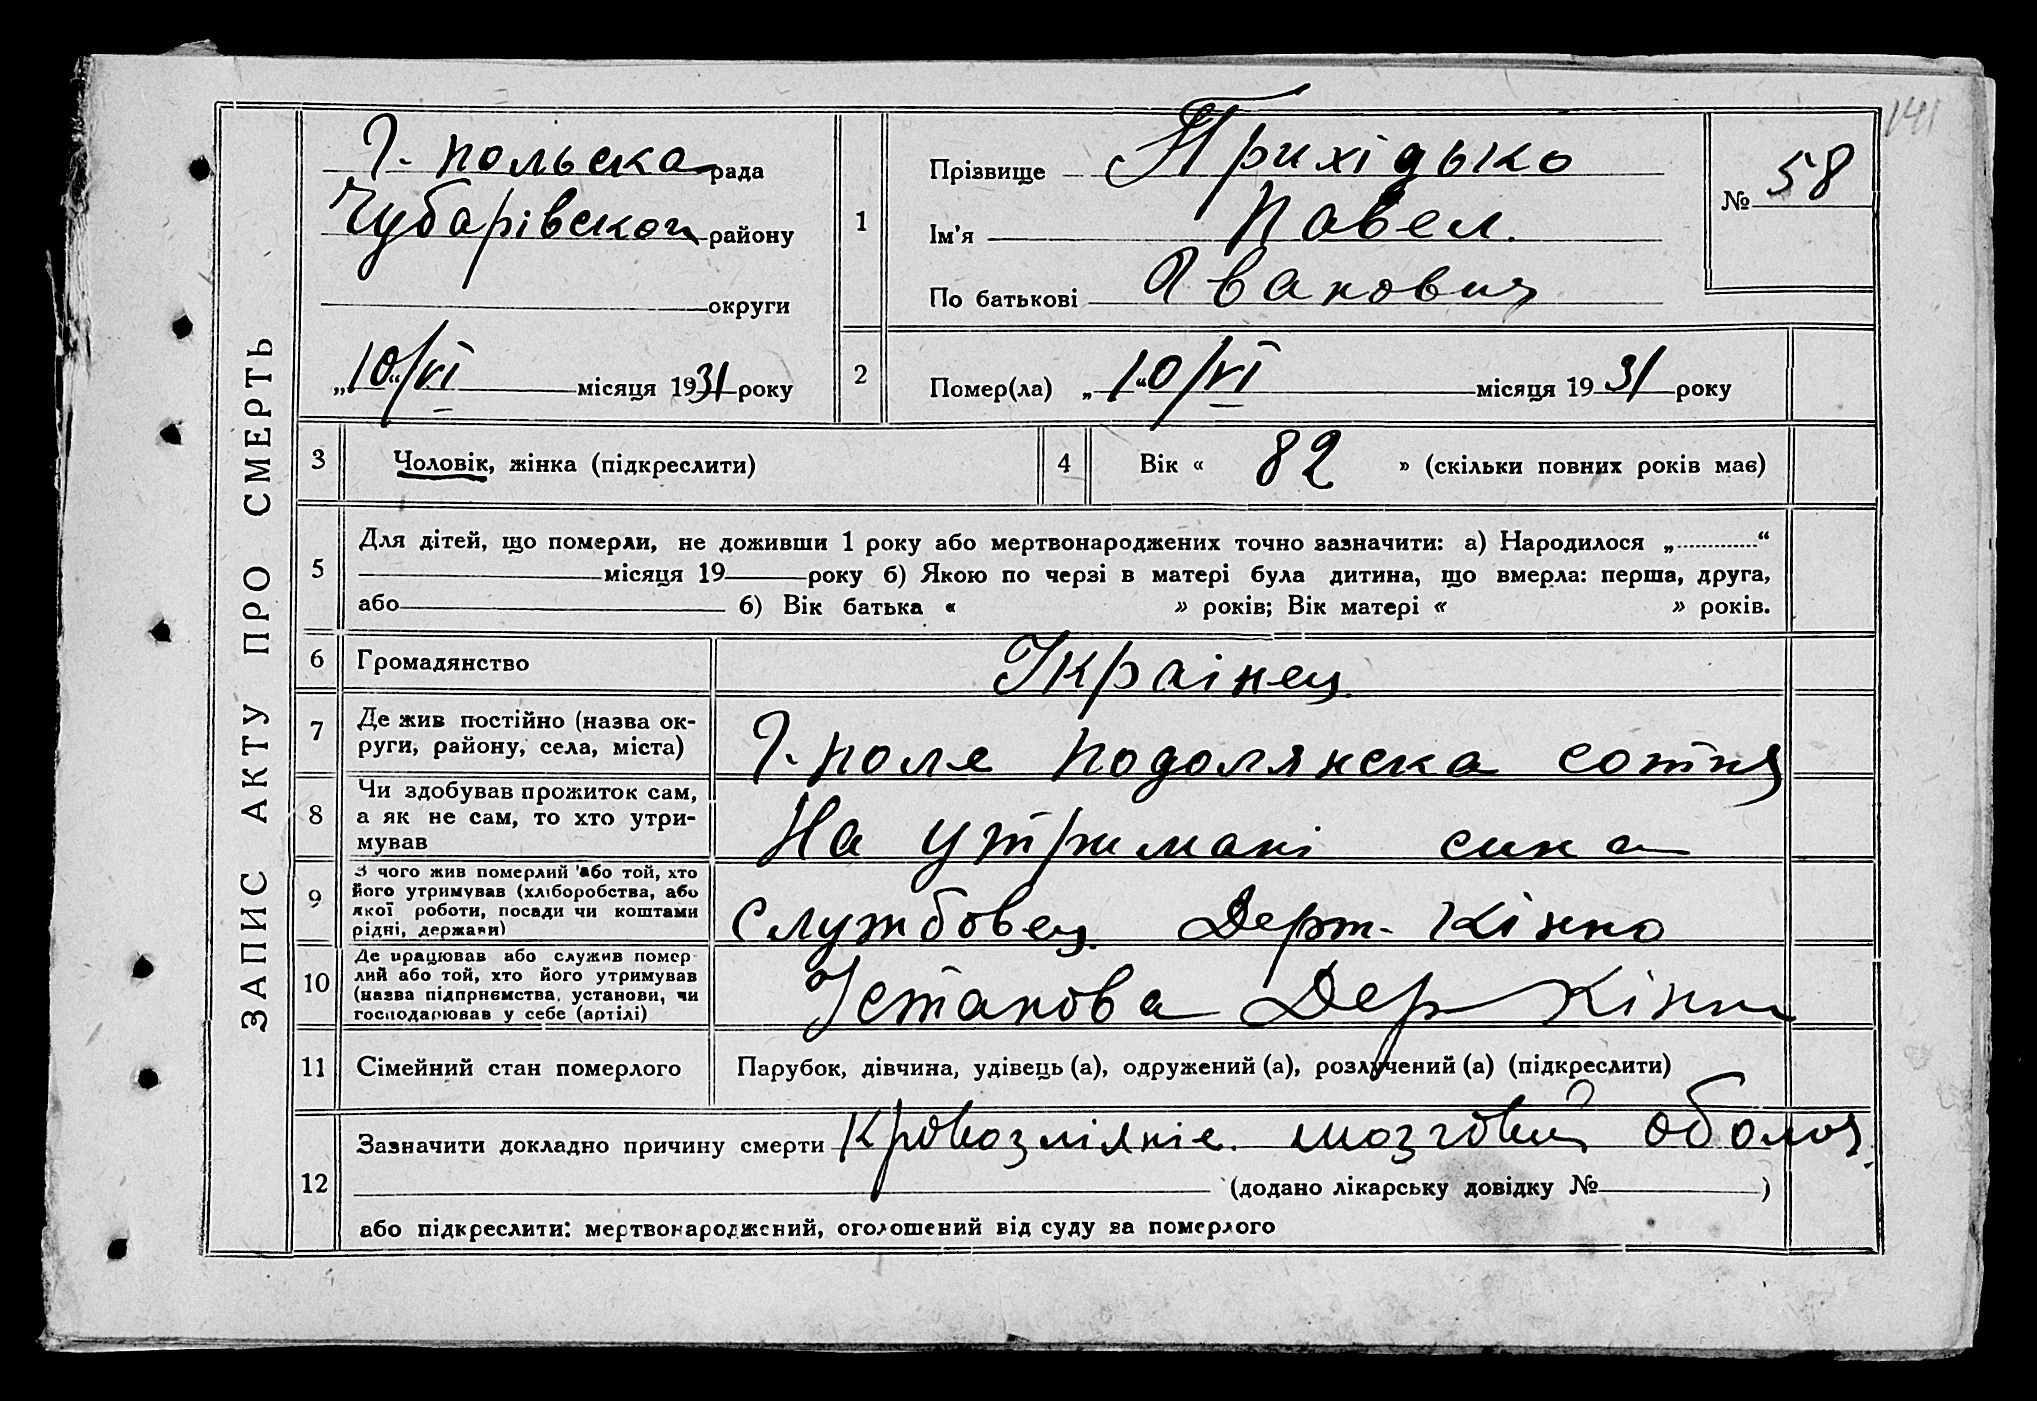 141
ЗАПИС АКТУ ПРО СМЕРТЬ
Г. польска рада
Чубарівского району
округи
„10“/VI місяця 1931 року
1
Прізвище Прихідько
Ім'я Павел.
По батькові Іванович
№ 58
2
Помер(ла) „10“/VI місяця 1931 року
3
Чоловік, жінка (підкреслити)
4
Вік « 82 » (скільки повних років має)
5
Для дітей, що померли, не доживши 1 року або мертвонароджених точно зазначити: а) Народилося „ “
місяця 19 року б) Якою по черзі в матері була дитина, що вмерла: перша, друга,
або б) Вік батька « » років; Вік матері « » років.
6
Громадянство
Українец
7
Де жив постійно (назва ок-
руги, району, села, міста)
Г-поле подолянска сотня
8
Чи здобував прожиток сам,
а як не сам, то хто утри-
мував
На утримані сина
9
З чого жив померлий або той, хто
його утримував (хліборобства, або
якої роботи, посади чи коштами
рідні, держави)
Службовец Держ. Кінно
10
Де працював або служив помер-
лий або той, хто його утримував
(назва підприємства, установи, чи
господарював у себе (артілі)
Установа Дер Кінно
11
Сімейний стан померлого
Парубок, дівчина, удівець (а), одружений (а), розлучений (а) (підкреслити)
12
Зазначити докладно причину смерти Кровозліяніе мозговий оболоч.
(додано лікарську довідку № )
або підкреслити: мертвонароджений, оголошений від суду за померлого